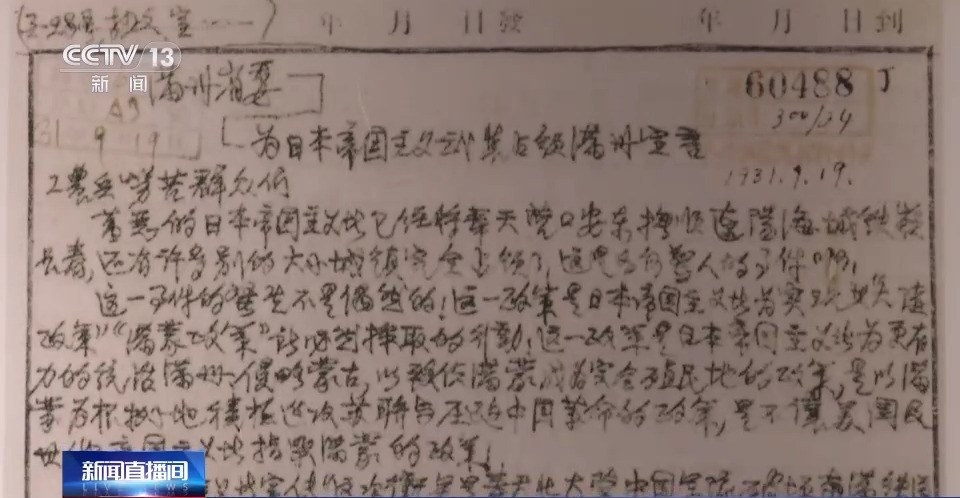 年 月 日发 年 月 日到
CCTV 13
新闻
满洲省委
60488
300/34
31 9 19
为日本帝国主义武装占领满洲宣言
1931.9.19.
工农兵劳苦群众们
万恶的日本帝国主义者已经将奉天营口安东抚顺辽阳海城铁岭
长春,还有许多别的大小城镇完全占领了,这是多么惊人的事件啊!
这一事件的发生不是偶然的!这一政策是日本帝国主义者为实现"大陆
政策""满蒙政策"所必然采取的行动!这一政策是日本帝国主义者为更有
力的统治满洲侵略蒙古,以致使满蒙成为完全殖民地的政策,是以满
蒙为根据地积极进攻苏联与压迫中国革命的政策,是不让美国及
其他帝国主义者指染满蒙的政策!
新闻直播间